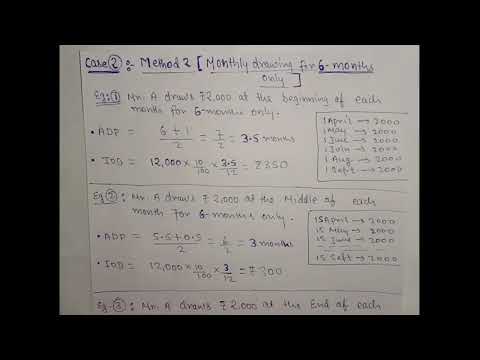 Case ② :- Method 2 [Monthly drawing for 6-months
only]
Eg:① Mr. A draws ₹2,000 at the beginning of each
month for 6-months only.
• ADP = 6+1/2 = 7/2 = 3.5 months
• IOD = 12,000 × 10/100 × 3.5/12 = ₹350
1 April → 2000
1 May → 2000
1 June → 2000
1 Aug. → 2000
1 Sept. → 2000
Eg② : Mr. A draws ₹2,000 at the Middle of each
month for 6-months only.
• ADP = 5.5+0.5/2 = 6/2 = 3 months
• IOD = 12,000 × 10/100 × 3/12 = ₹300
15 April → 2000
15 May → 2000
15 June → 2000
15 Sept → 2000
Eg.③ : Mr. A draws ₹2,000 at the End of each